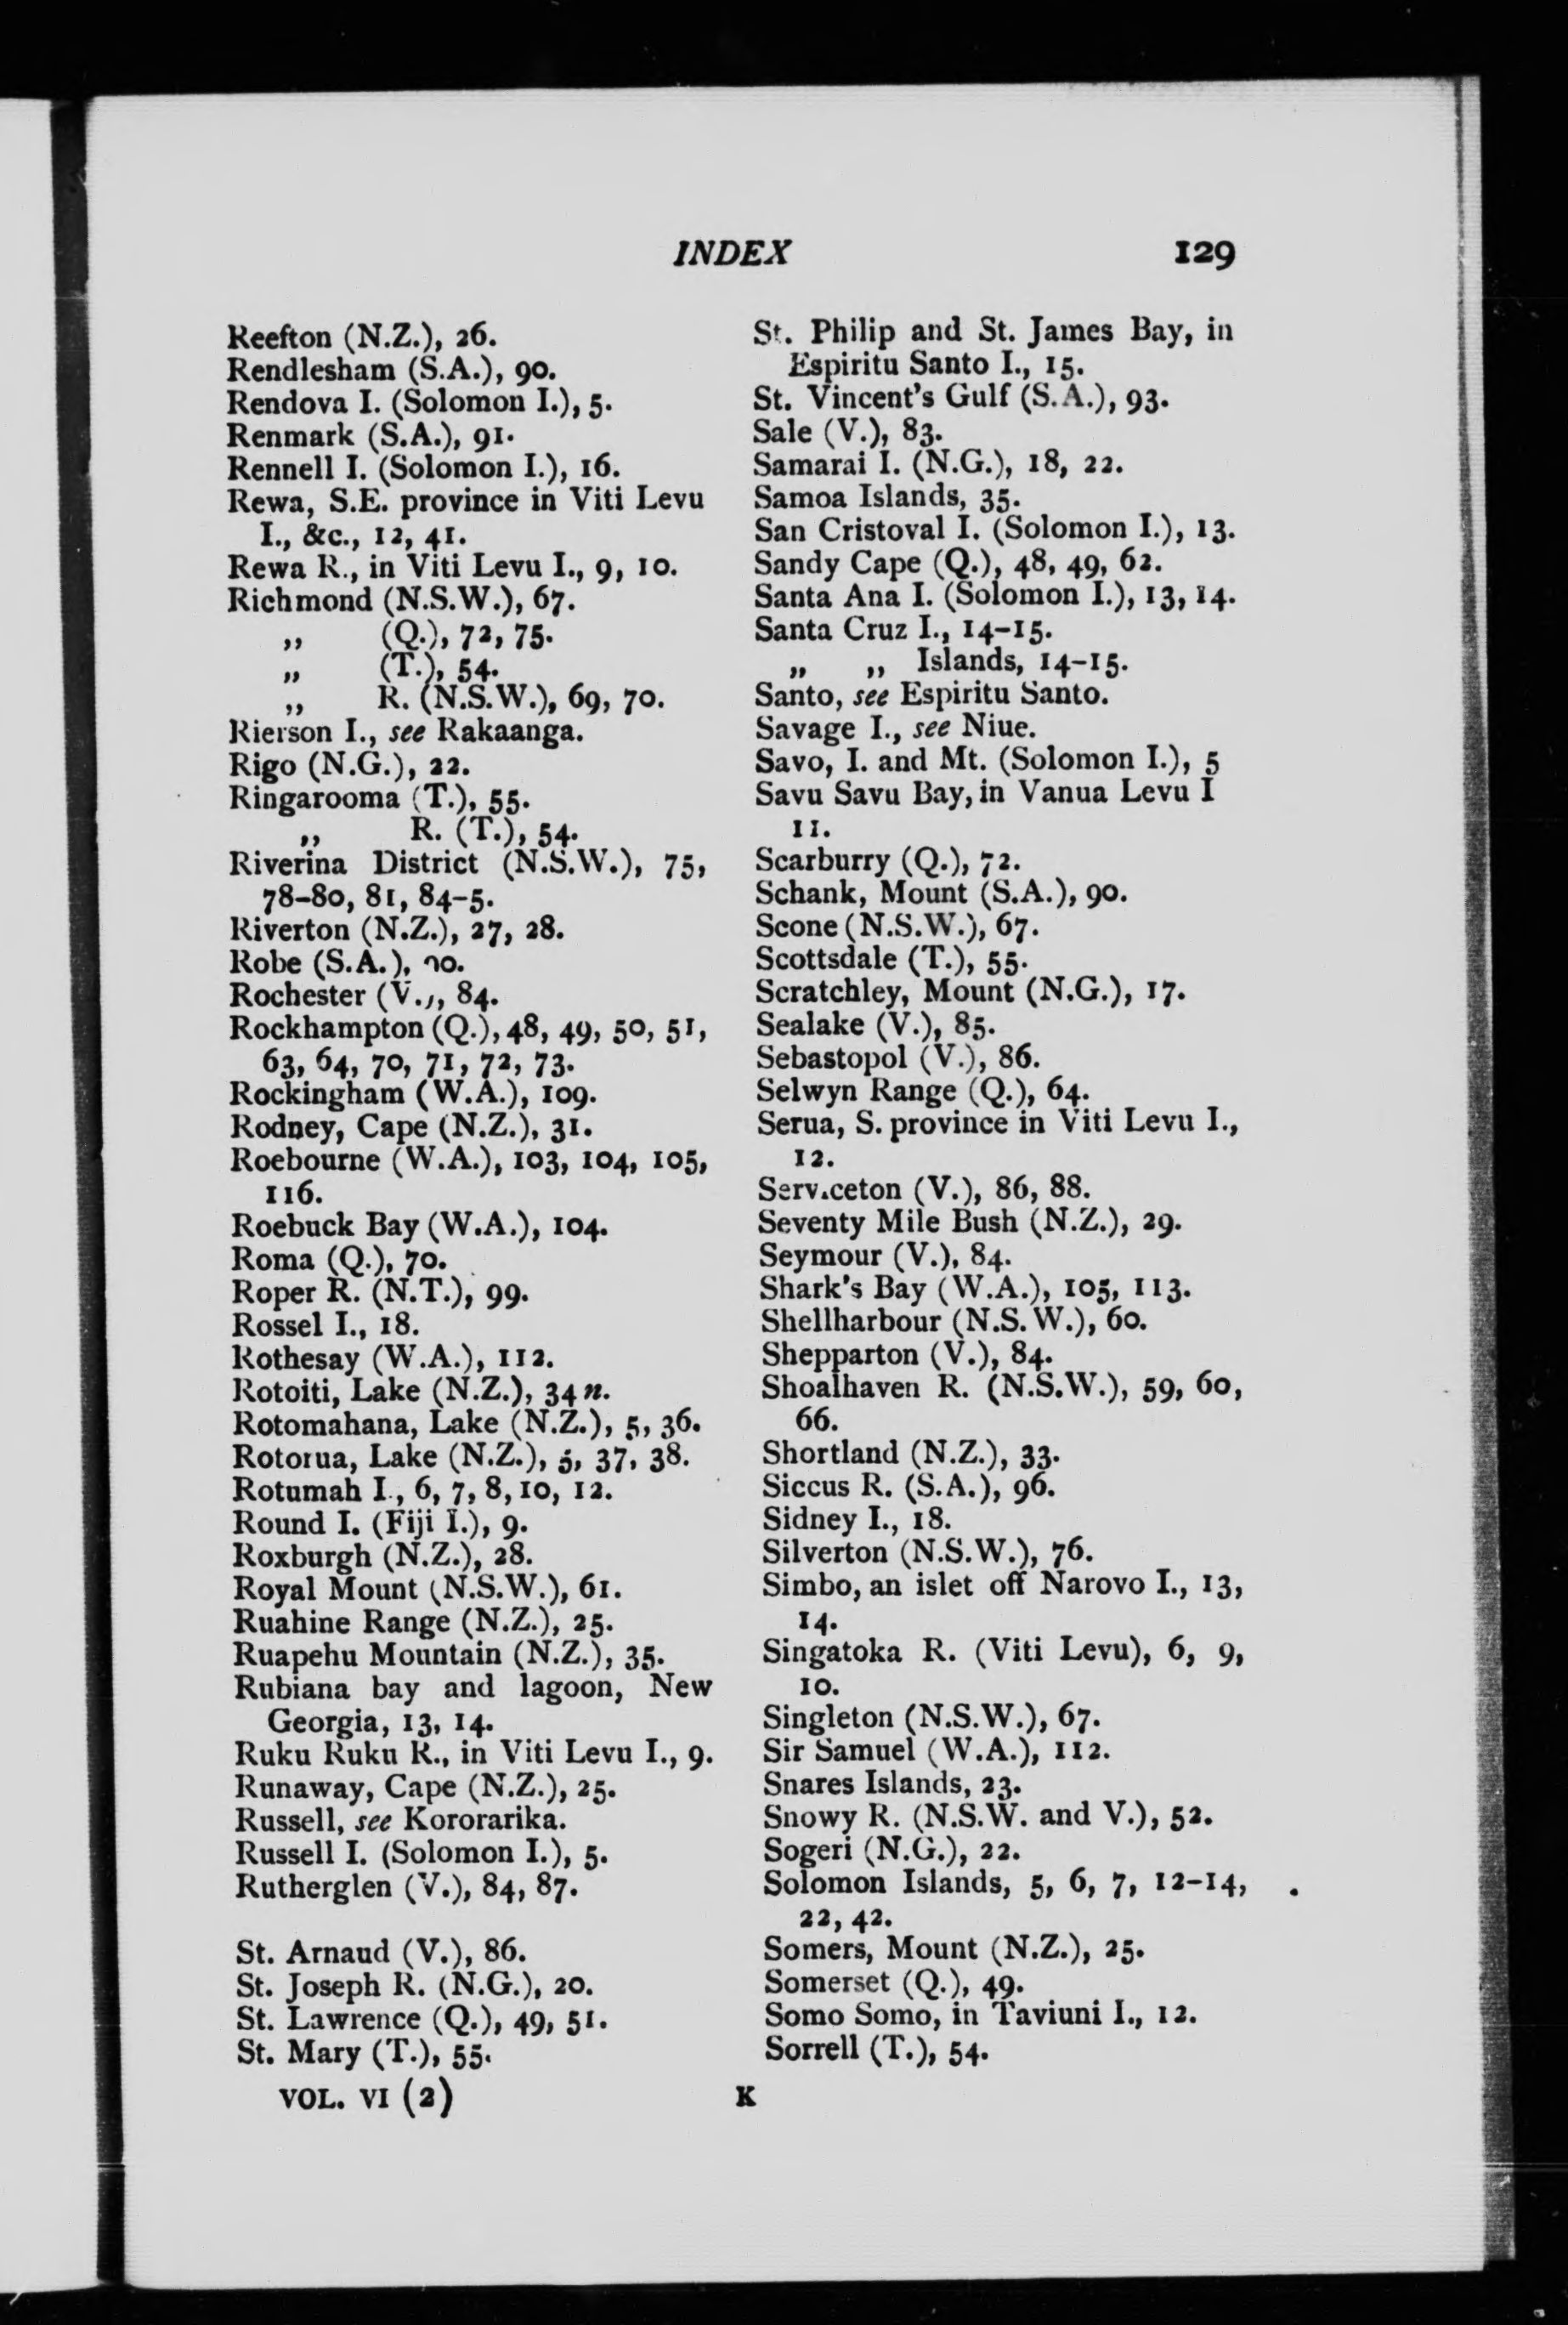 INDEX 129
Reefton (N.Z.), 26.
Rendlesham (S.A.), 90.
Rendova I. (Solomon I.), 5.
Renmark (S.A.), 91.
Rennell I. (Solomon I.), 16.
Rewa, S.E. province in Viti Levu
I., &c., 12, 41.
Rewa R., in Viti Levu I., 9, 10.
Richmond (N.S.W.), 67.
,, (Q.), 72, 75.
,, (T.), 54.
,, R. (N.S.W.), 69, 70.
Rierson I., see Rakaanga.
Rigo (N.G.), 22.
Ringarooma (T.), 55.
,, R. (T.), 54.
Riverina District (N.S.W.), 75,
78-80, 81, 84-5.
Riverton (N.Z.), 27, 28.
Robe (S.A.),
Rochester (V.), 84.
Rockhampton (Q.), 48, 49, 50, 51,
63, 64, 70, 71, 72, 73.
Rockingham (W.A.), 109.
Rodney, Cape (N.Z.), 31.
Roebourne (W.A.), 103, 104, 105,
116.
Roebuck Bay (W.A.), 104.
Roma (Q.), 70.
Roper R. (N.T.), 99.
Rossel I., 18.
Rothesay (W.A.), 112.
Rotoiti, Lake (N.Z.), 34 n.
Rotomahana, Lake (N.Z.), 5, 36.
Rotorua, Lake (N.Z.), 5, 37, 38.
Rotumah I., 6, 7, 8, 10, 12.
Round I. (Fiji I.), 9.
Roxburgh (N.Z.), 28.
Royal Mount (N.S.W.), 61.
Ruahine Range (N.Z.), 25.
Ruapehu Mountain (N.Z.), 35.
Rubiana bay and lagoon, New
Georgia, 13, 14.
Ruku Ruku R., in Viti Levu I., 9.
Runaway, Cape (N.Z.), 25.
Russell, see Kororarika.
Russell I. (Solomon I.), 5.
Rutherglen (V.), 84, 87.
St. Arnaud (V.), 86.
St. Joseph R. (N.G.), 20.
St. Lawrence (Q.), 49, 51.
St. Mary (T.), 55.
St. Philip and St. James Bay, in
Espiritu Santo I., 15.
St. Vincent's Gulf (S.A.), 93.
Sale (V.), 83.
Samarai I. (N.G.), 18, 22.
Samoa Islands, 35.
San Cristoval I. (Solomon I.), 13.
Sandy Cape (Q.), 48, 49, 62.
Santa Ana I. (Solomon I.), 13, 14.
Santa Cruz I., 14-15.
,, ,, Islands, 14-15.
Santo, see Espiritu Santo.
Savage I., see Niue.
Savo, I. and Mt. (Solomon I.), 5
Savu Savu Bay, in Vanua Levu I
11.
Scarburry (Q.), 72.
Schank, Mount (S.A.), 90.
Scone (N.S.W.), 67.
Scottsdale (T.), 55.
Scratchley, Mount (N.G.), 17.
Sealake (V.), 85.
Sebastopol (V.), 86.
Selwyn Range (Q.), 64.
Serua, S. province in Viti Levu I.,
12.
Serviceton (V.), 86, 88.
Seventy Mile Bush (N.Z.), 29.
Seymour (V.), 84.
Shark's Bay (W.A.), 105, 113.
Shellharbour (N.S.W.), 60.
Shepparton (V.), 84.
Shoalhaven R. (N.S.W.), 59, 60,
66.
Shortland (N.Z.), 33.
Siccus R. (S.A.), 96.
Sidney I., 18.
Silverton (N.S.W.), 76.
Simbo, an islet off Narovo I., 13,
14.
Singatoka R. (Viti Levu), 6, 9,
10.
Singleton (N.S.W.), 67.
Sir Samuel (W.A.), 112.
Snares Islands, 23.
Snowy R. (N.S.W. and V.), 52.
Sogeri (N.G.), 22.
Solomon Islands, 5, 6, 7, 12-14,
22, 42.
Somers, Mount (N.Z.), 25.
Somerset (Q.), 49.
Somo Somo, in Taviuni I., 12.
Sorrell (T.), 54.
VOL. VI (2) K